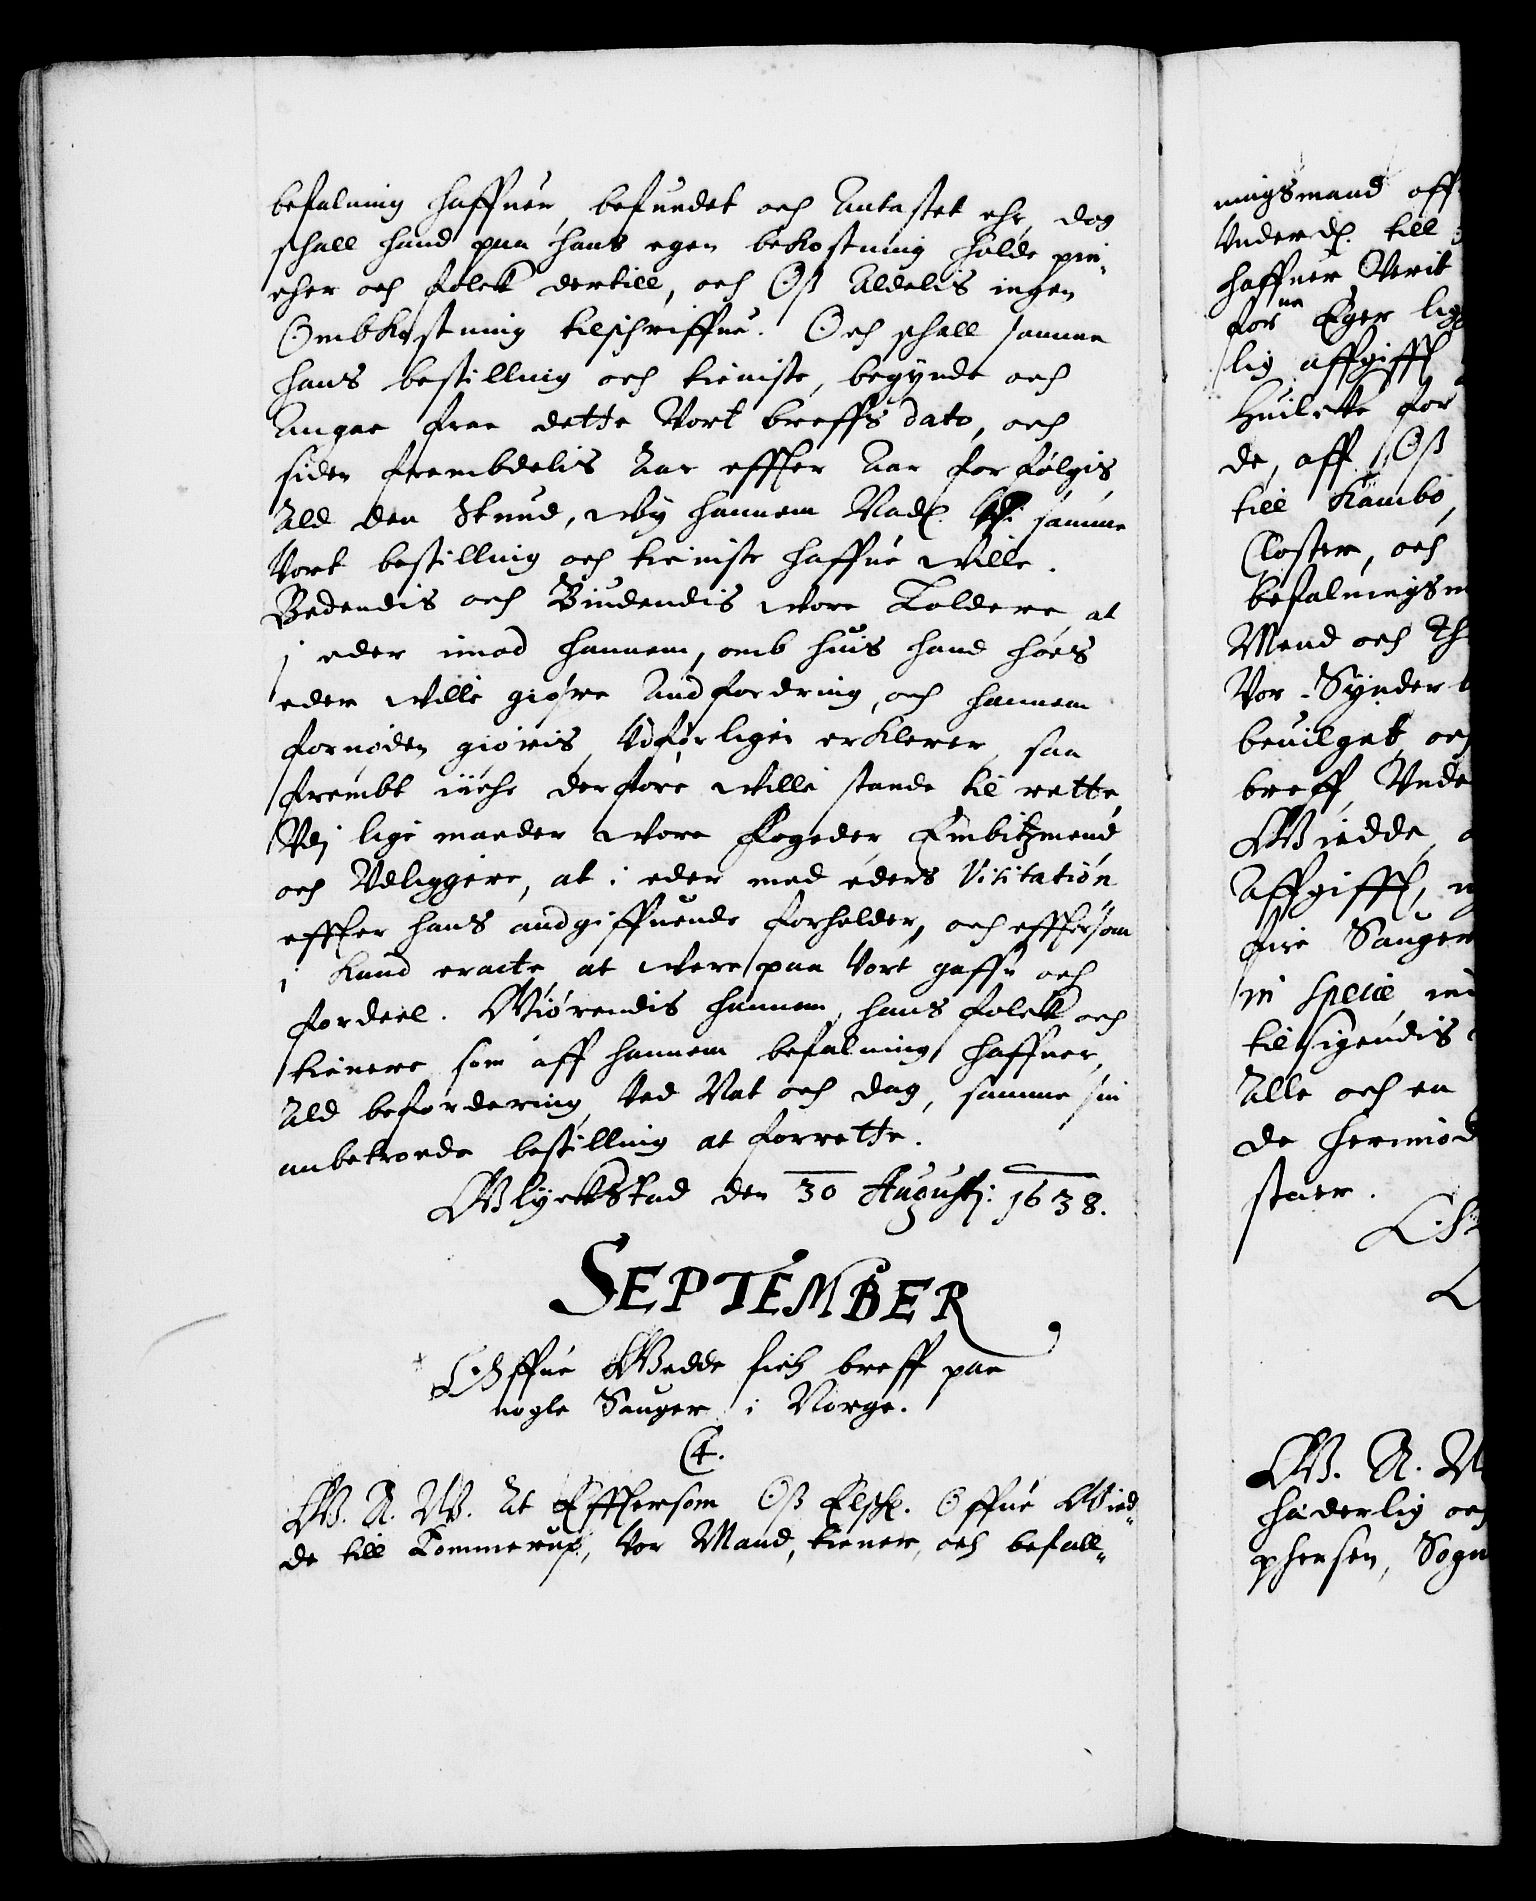 befalning haffuer, befundet och Antastet ehr, dog
schall hand paa hans egen bekostning holde pin¬
cher och folck dertill, och Oß Aldelis ingen
Ombkostning tilschriffue. Och schall samme
hans bestilling och tieniste, begynde och
Angaa fraa dette Vort breffs dato, och
siden frembdelis Aar effter Aar forfølgis
Ald den Stund, Wij hannem Naadl. samme
Vort bestilling och tieniste haffue wille.
Bedendis och Biudendis wore Toldere, at
j eder imod hannem, omb huis hand hoes
eder wille giøre Andfordring, och hannem
fornøden giøris, Vdførligen erklerer, saa
frembt i iche derfore wille stande til rette,
Vdj lige maader wore Fogeder, Embitzmend
och Vdliggere, at i eder med eders Visitation
effter hans andgiffuende forholder, och efftersom
i kand eracte, at were paa Vort gaffn och
fordeel. Giørendis hannem, hans folck och
tienere som aff hannem befalning haffuer,
Ald befordering, Ved Nat och dag, samme sin
anbetroede bestilling at forrette.
Glyckstad den 30 Augustj: 1638.
SEPTEMBER
Offue Gedde fick breff paa
nogle Sauger i Norge.
4.
G. A. W. At Effterson Oß Elschl. Offue Gied¬
de till Tommerup, Vor Mand, tiener, och befall¬
ningsmand off
Vnderdl. till
haffuer Verit
forne Eger lig
lig affgifft
Huilcke for
de, aff Oß
till Kambo,
Closter, och
befalningsm
Mend och Th
Vor Synder
beuilget, och
breff, Vnde
Giedde,
Affgifft,
fire Sauger
in specie
tilsigendis
Alle och en
de hermod
staer.
G. A. W
haderlig och
phersen, Sogn